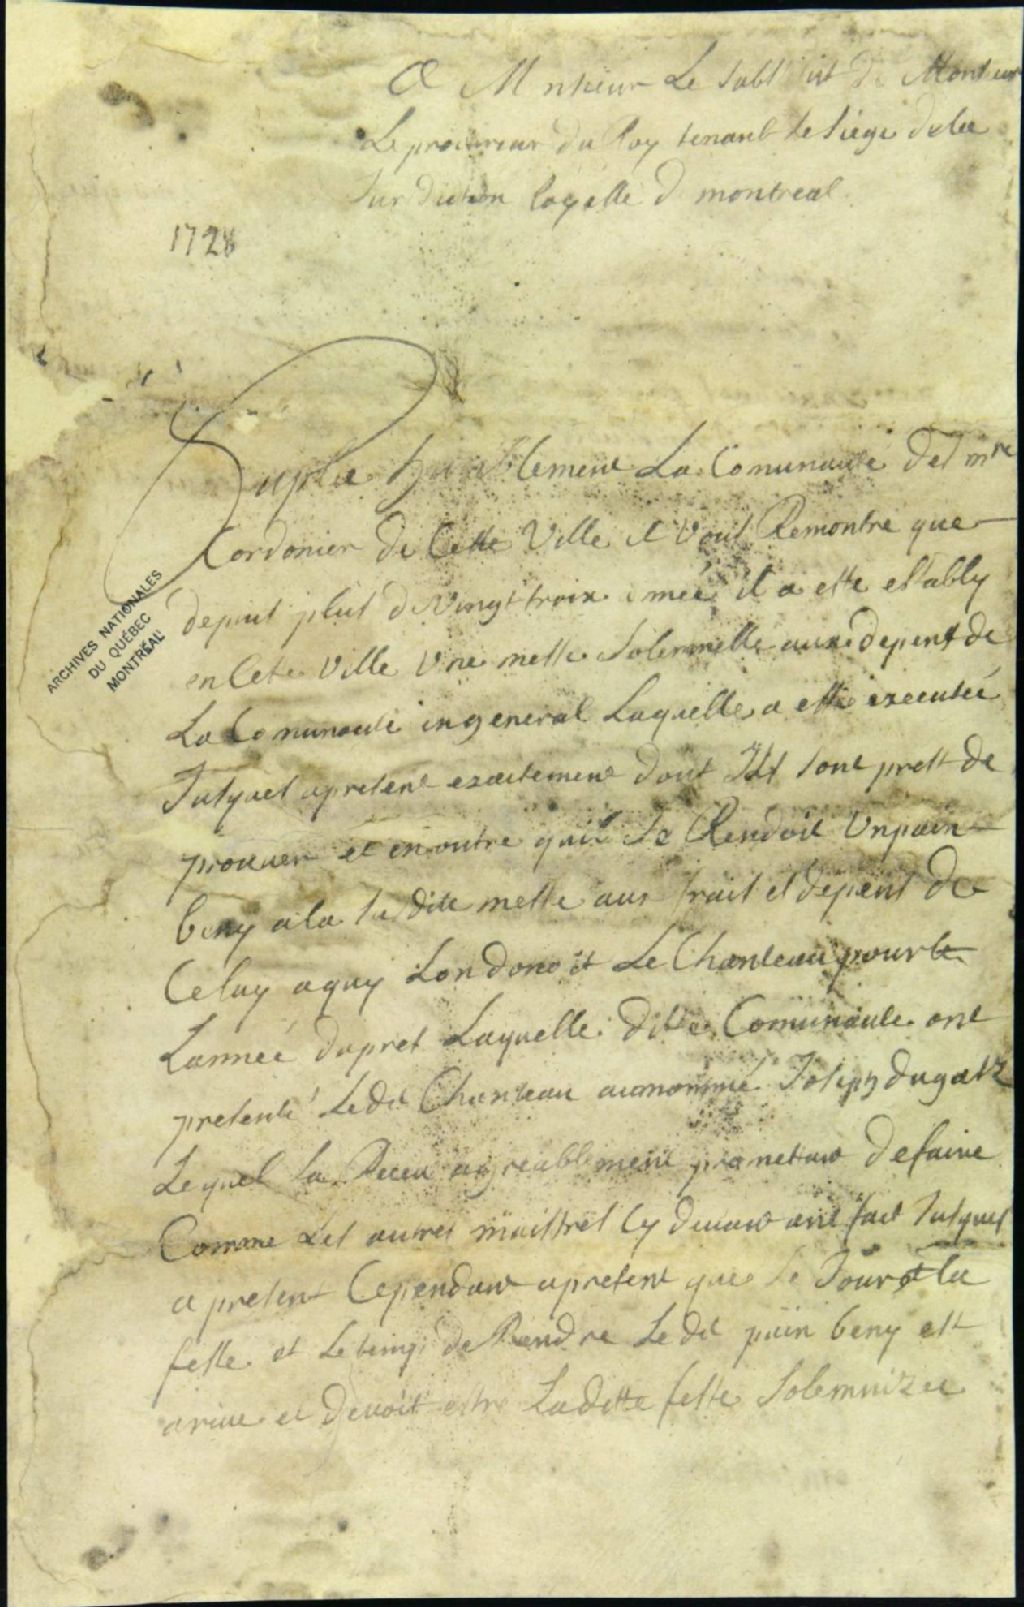 A Monsieur Le Substitut De Monsieur
Le procureur du Roy tenant le siege dela
Jurdiction Royalle d montreal
1728
Suplie humblement La Comunauté des mre
Cordonier de Cette Ville et Vous Remontre que
depuis plus de Vingt trois année il a esté establÿ
en Cete Ville Vne messe Solemnelle aux depens de
La Comunauté in general Laquelle a esté executée
Jusques apresent exactement dont Ils sont prest de
prouuer et en outre quil Se Rendoit Vn pain
beny ala susdite messe aus frait et depens de
Celuy aquy Londonoit Le Chanteau pour
Lannee dapres Laquelle dite Comunaute ont
presenté Ledit Chanteau aunommé Joseph dugast
Lequel la Receu agreablement prometant defaire
Comme Les autres maistres Cy deuant ont fait Jusques
apresent Cependant apresent que le Jour de la
feste et Letemps de Rendre Ledit pain beny est
ariué et deuoit estre Laditte feste Solemnizée
ARCHIVES NATIONALES
DU QUÉBEC
MONTRÉAL